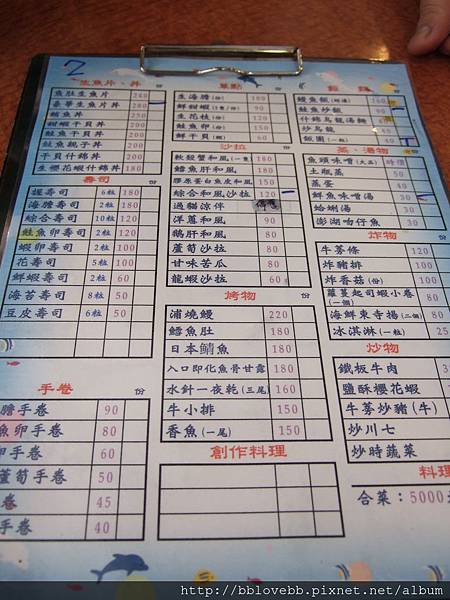 2
生魚片、丼 份
魚肚生魚片 240
豪華生魚片丼 280
鮪魚丼 250
鮭魚干貝丼 200
甜蝦干貝丼 200
鮭魚親子丼 200
干貝什錦丼 200
生櫻花蝦什錦丼 180
壽司 份
握壽司 6粒 180
海膽壽司 2粒 180
綜合壽司 10粒 120
鮭魚卵壽司 2粒 120
蝦卵壽司 2粒 100
花壽司 5粒 100
鮮蝦壽司 2粒 60
海苔壽司 8粒 50
豆皮壽司 6粒 50
手卷 份
膽手卷 90
魚卵手卷 80
卵手卷 60
蘆筍手卷 50
卷 45
手卷 40
單點 份
生海膽(份) 180
鮮甜蝦(份) 90
生花枝(份) 120
鮭魚卵(份) 150
鮮干貝(份) 60
沙拉 份
軟殼蟹和風(一隻) 180
鱈魚肝和風 180
膠原蛋白魚皮和風 150
綜合和風沙拉 120
過貓涼伴
洋蔥和風 90
鵝肝和風 80
蘆筍沙拉 80
甘味苦瓜 80
龍蝦沙拉 60
烤物 份
浦燒鰻 220
鱈魚肚 180
日本鯖魚 180
入口即化魚骨甘露 180
水針一夜乾(三尾) 160
牛小排 150
香魚(一尾) 150
創作料理
飯、麵 份
鰻魚飯 160
鮭魚炒飯 90
什錦烏龍湯麵
炒烏龍 80
飯團(一粒)
蒸、湯物 份
魚頭味噌(大三) 時價
土瓶蒸 50
蒸蛋 40
鮮魚味噌湯 30
蛤蜊湯 30
澎湖吻仔魚 50
炸物 份
牛蒡條 120
炸豬排 100
炸香菇(份) 100
蘿蔓起司蝦小卷(一個) 80
海鮮東寺揚(二個) 80
冰淇淋(一粒) 25
炒物
鐵板牛肉
鹽酥櫻花蝦
牛蒡炒豬(牛)
炒川七
炒時蔬菜
料理
合菜：5000元
http://bblovebb.pixnet.net/album